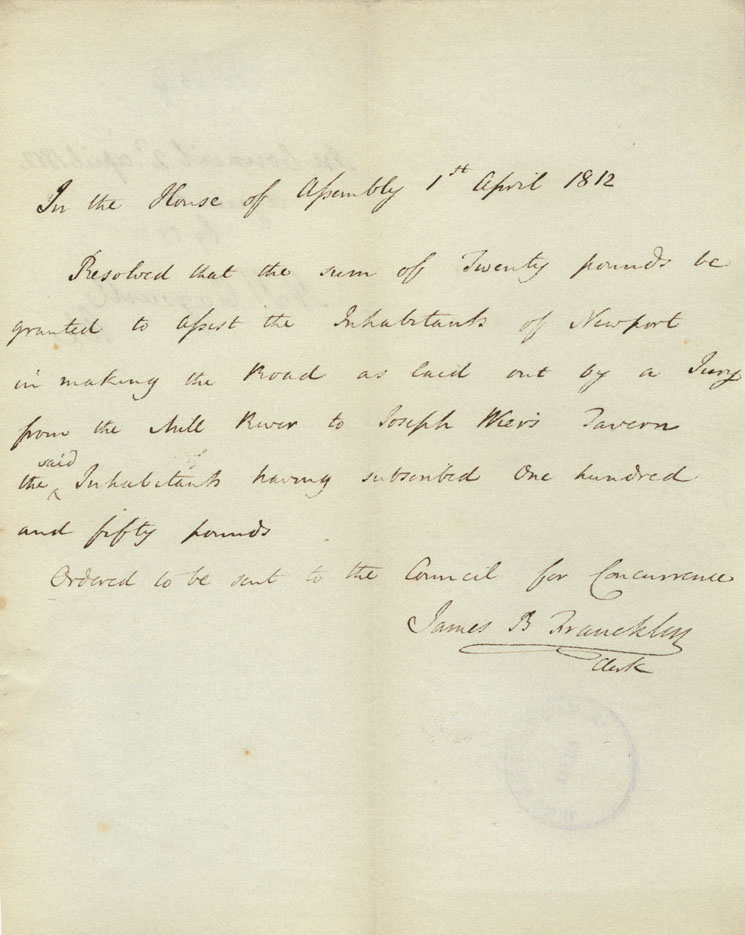 In the House of Assembly 1st April 1812
Resolved that the sum of Twenty pounds be
granted to assist the Inhabitants of Newport
in making the Road as laid out by a Jury
from the Mill River to Joseph Wier's Tavern
the said Inhabitants having subscribed One hundred
and fifty pounds
Ordered to be sent to the Council for Concurrence
James B Francklin
Clerk